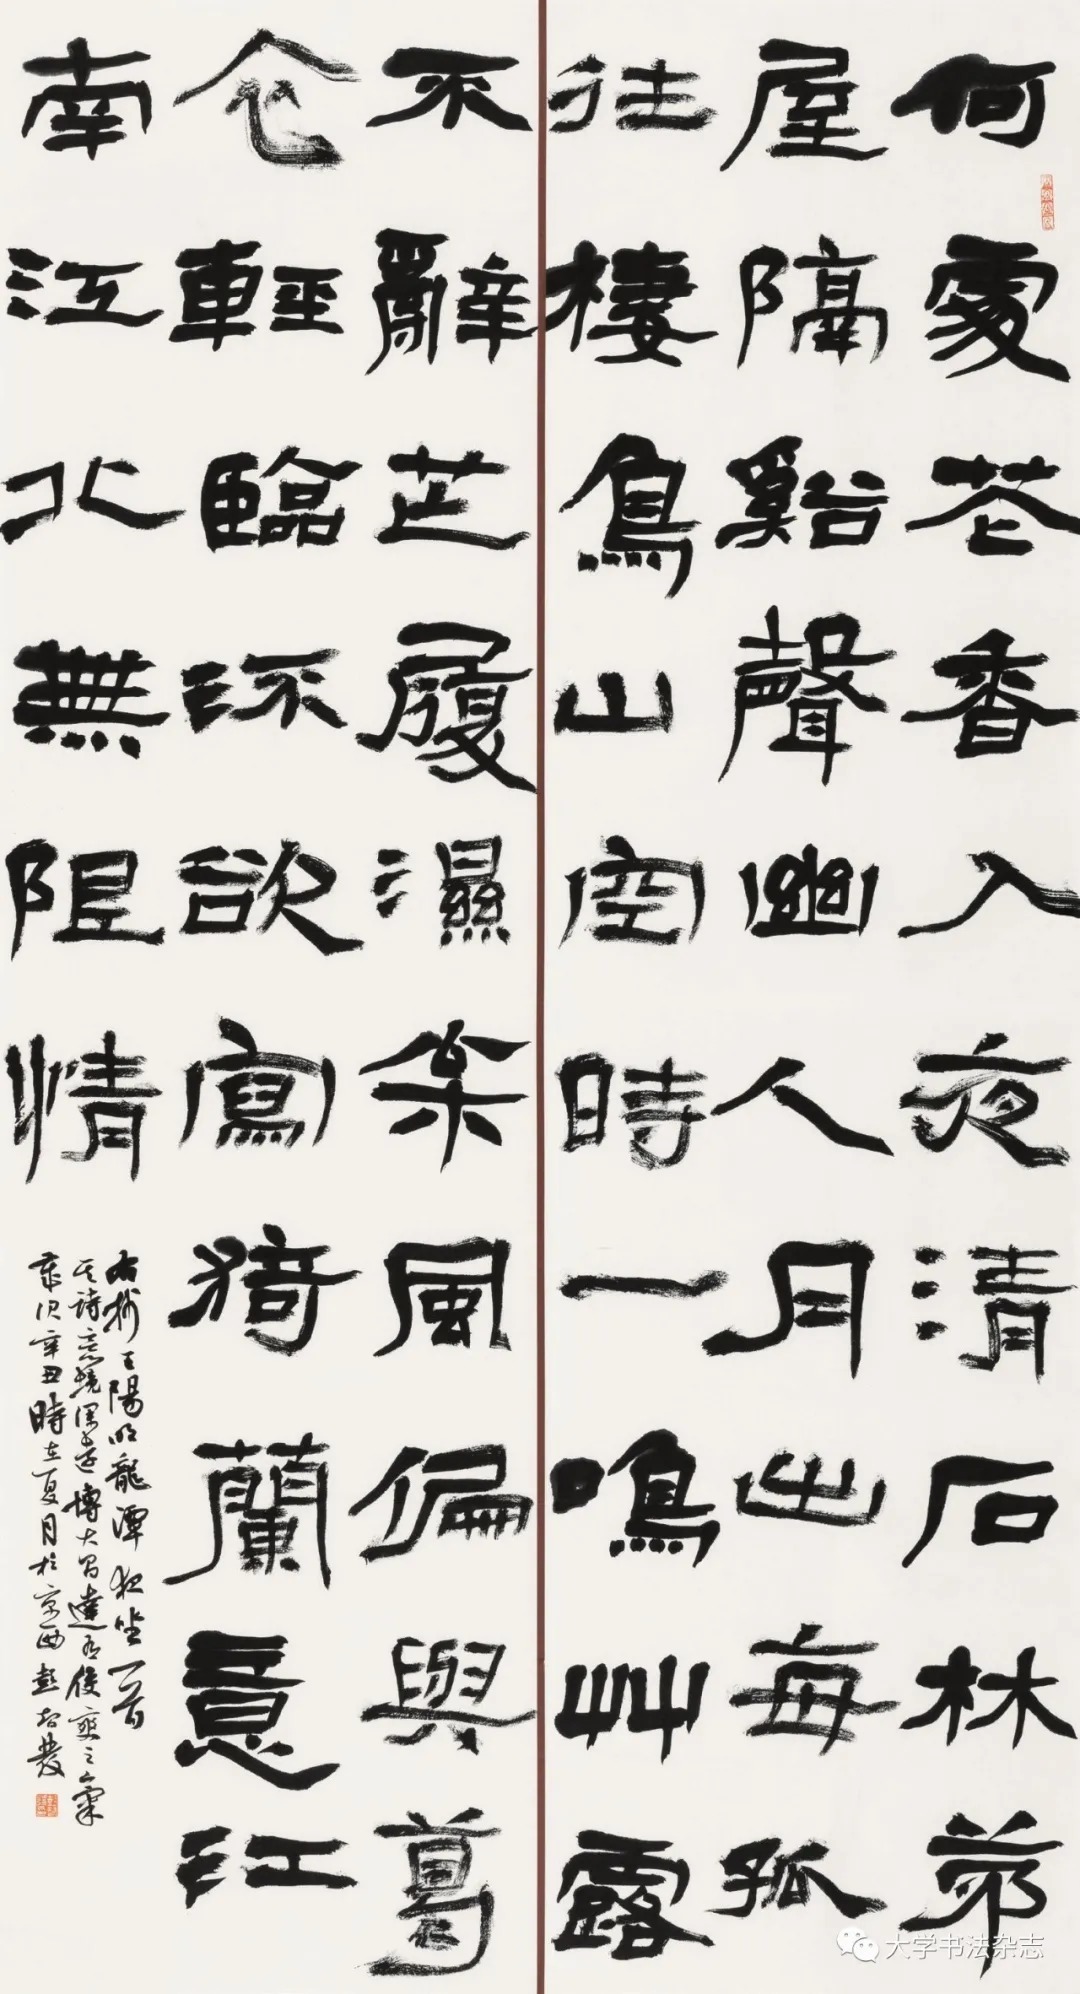 何處花香入夜清石林茅
屋隔谿聲幽人月出每孤
往棲鳥山空時一鳴艸露
不辭芒履濕枀風偏與葛
衣輕臨流欲寫猗蘭意江
南江北無限情
右抄王陽明龍潭夜坐一首
其詩意境深遠博大昌達有俊爽之氣
歲次辛丑時在夏月於京西彭
大学书法杂志